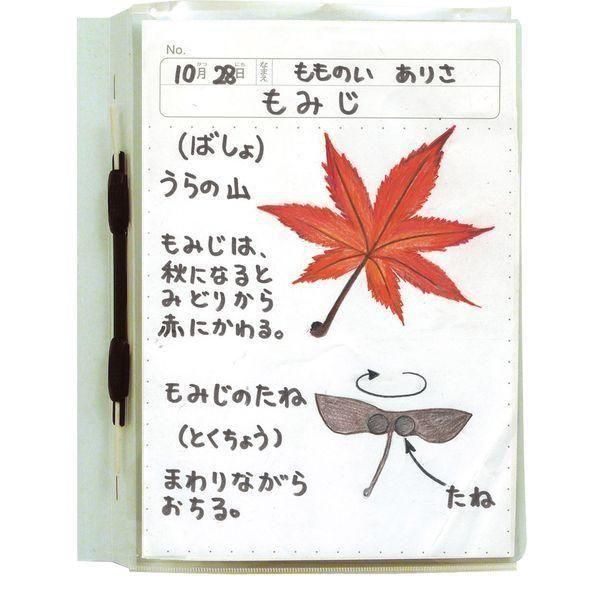 No.
10月28日 なまえ もものい ありさ
もみじ
(ばしょ)
うらの山
もみじは、
秋になると
みどりから
赤にかわる。
もみじのたね
(とくちょう)
まわりながら
おちる。
たね